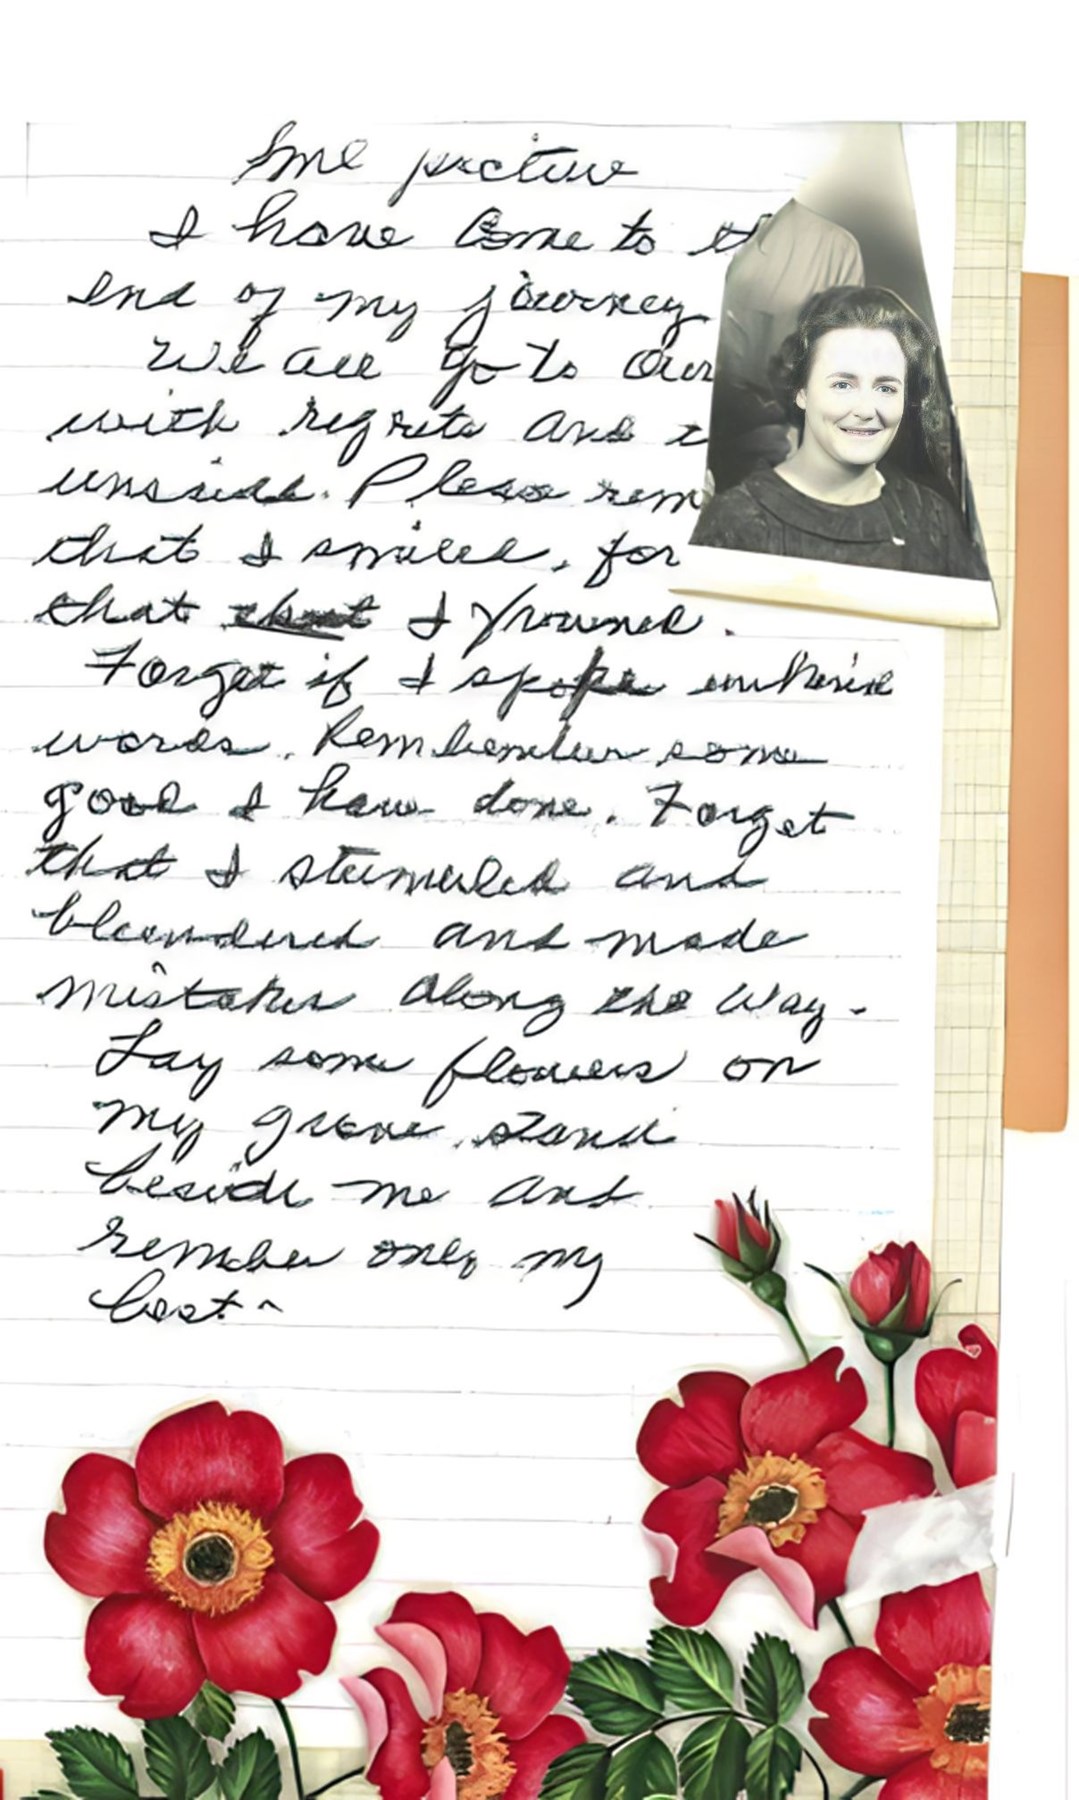 picture
I have Come to th
end of my journey
We all go to our
with regrets and
unsaid. Please rem
that I smiled, for
that that I frowned.
Forget if I spoke unkind
words. Rembember some
good I have done. Forget
that I stumbled and
blundered and made
mistakes along the way.
Lay some flowers on
my grave stand
beside me and
rember only my
best.